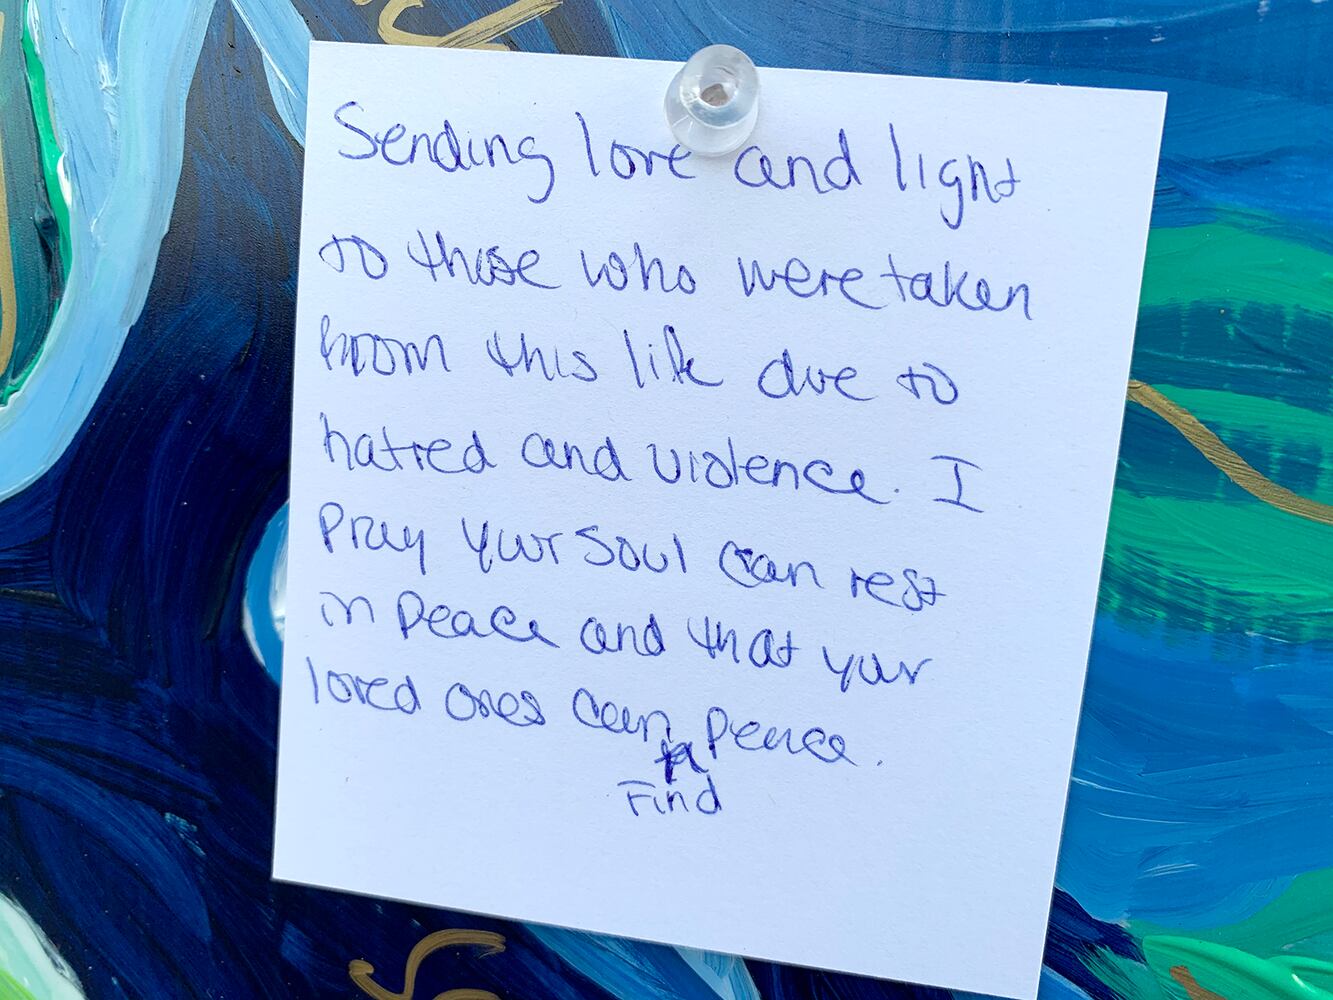 Sending love and light
to those who were taken
from this life due to
hatred and violence. I
pray your soul can rest
in peace and that your
loved ones can peace.
Find